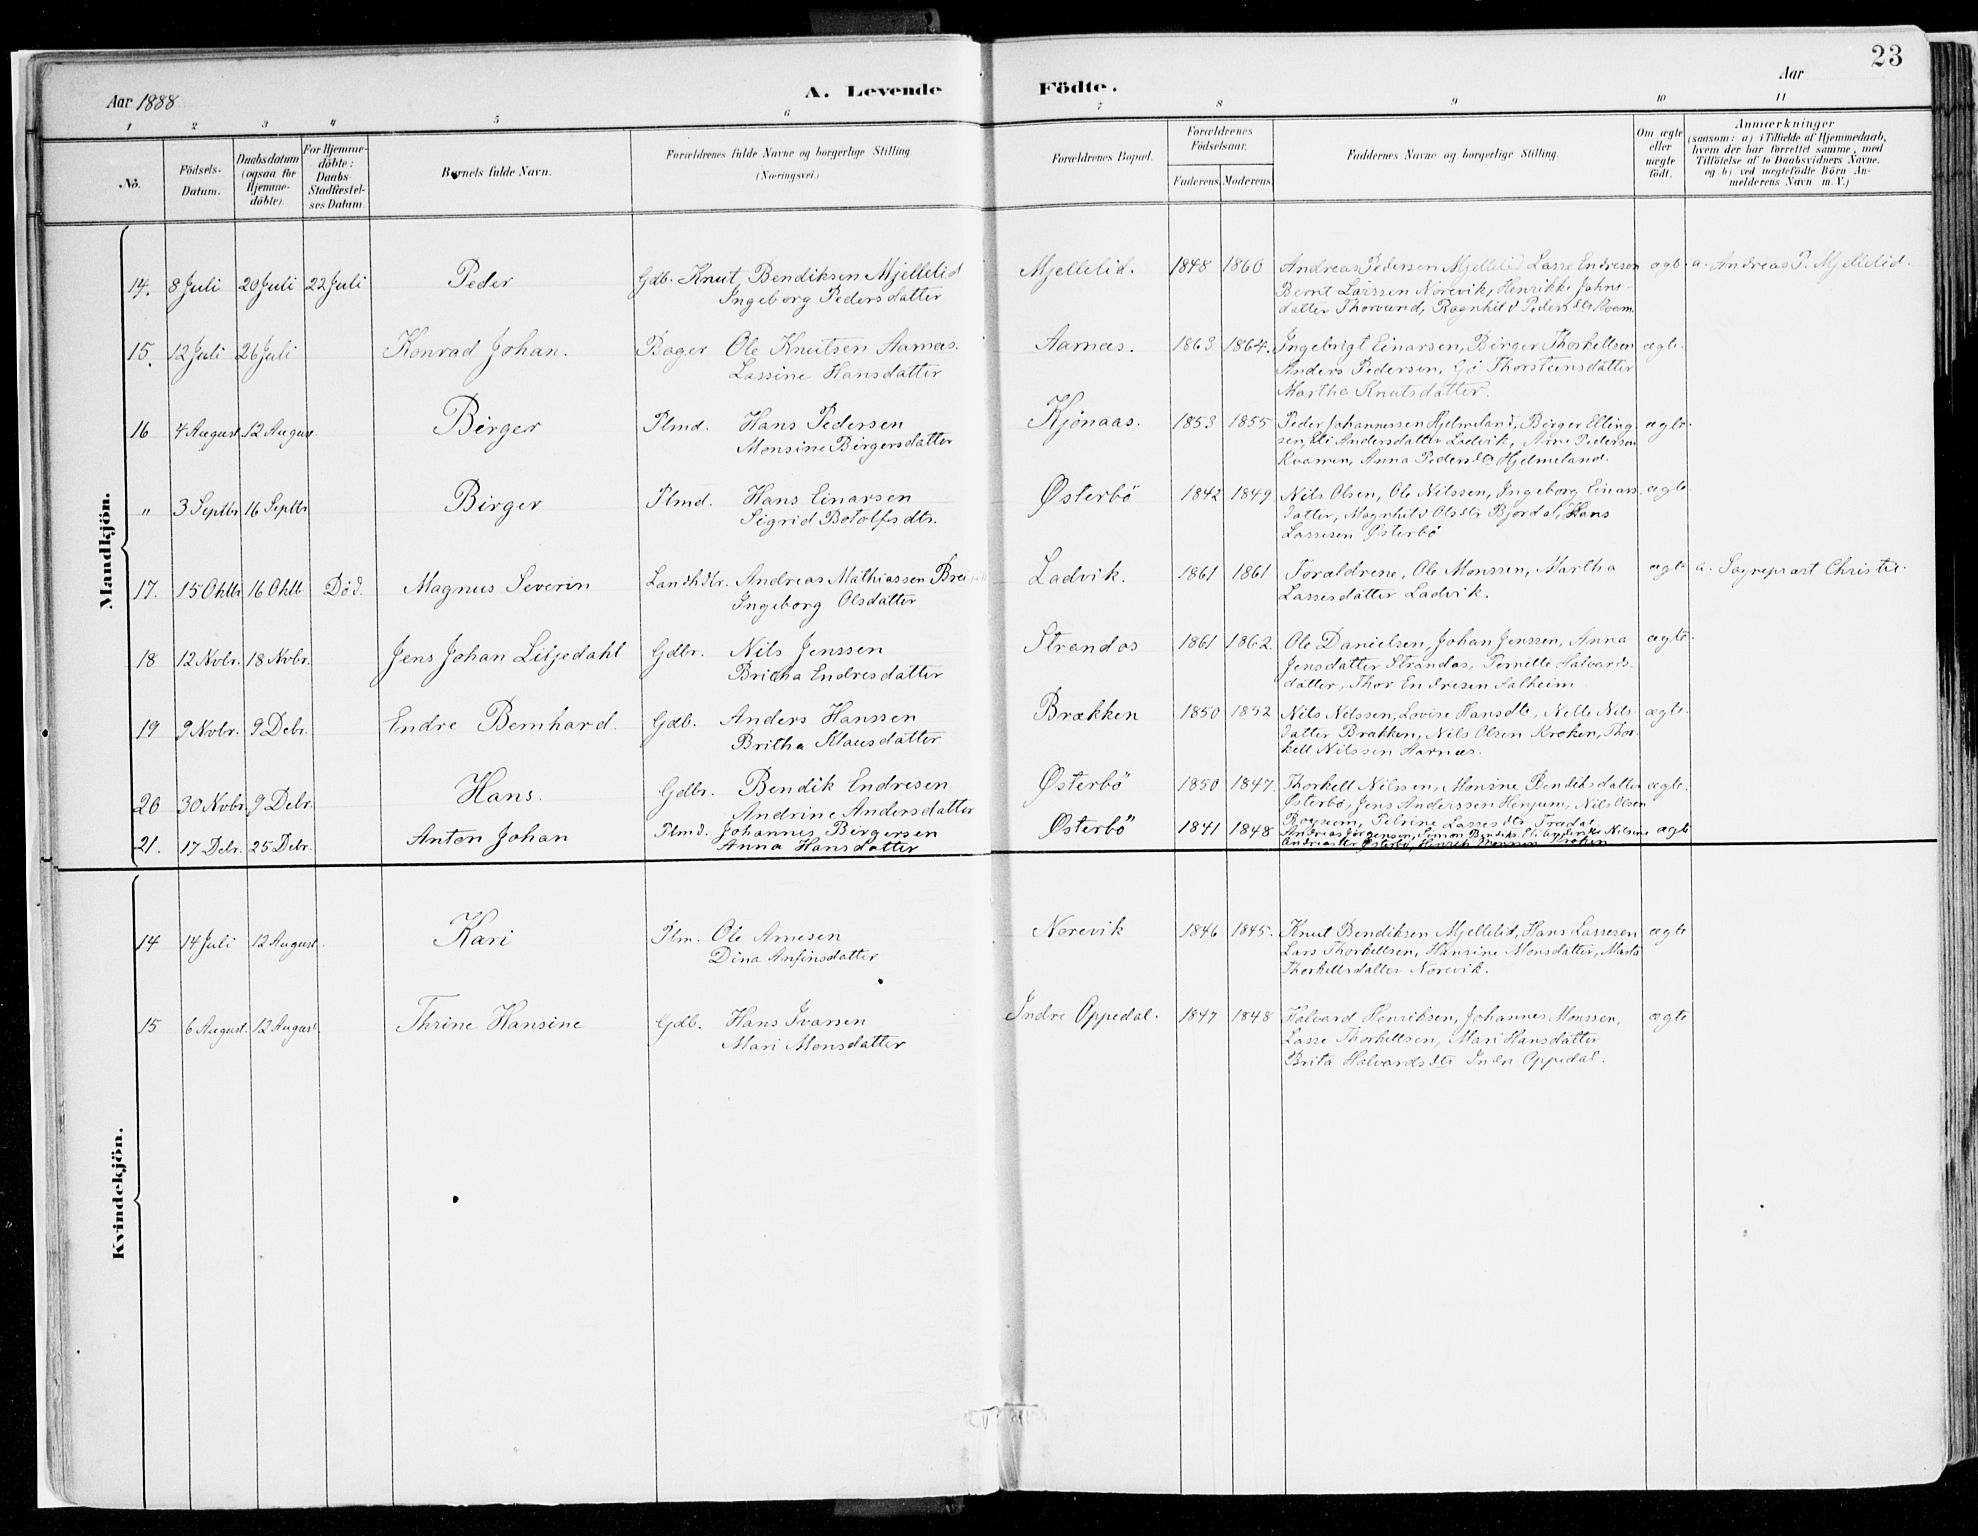 23
Aar 1888
A. Levende Födte.
Aar
1 2 3 4 5 6 7 8 9 10 11
No.
Födsels-Datum.
Daabsdatum (ogsaa for Hjemmedöbte).
For Hjemmedöbte: Daabs-Stadfæstelses Datum.
Barnets fulde Navn.
Forældrenes fulde Navne og borgerlige Stilling
(Næringsvei.)
Forældrenes Bopæl.
Forældrenes Födselsaar.
Faderens. Moderens.
Faddernes Navne og borgerlige Stilling.
Om ægte eller uægte födt.
Anmærkninger
(saasom: a) i Tilfælde af Hjemmedaab, hvem der har forrettet samme, med Tilföielse af to Daabsvidners Navne, og b) ved uægtefödte Börn Anmelderens Navn m. V.)
Mandkjön.
14. 8 Juli 20 Juli 22 Juli Peder Gdb. Knut Bendiksen Mjellelid Mjellelid. 1848 1860 Andreas Pedersen Mjellelid Lasse Endresen ægte a. Andreas P. Mjellelid.
Ingeborg Pedersdatter Bernt Larssen Norevik, Henrikke Johns-
datter Thorsund, Ragnhild Pedersdtr
15. 12 Juli 26 Juli Konrad Johan. Bager Ole Knutsen Aarnæs. Aarnæs. 1863 1864. Ingebrigt Einarsen, Birger Thorkellsen ægte.
Lassine Hansdatter Anders Pedersen, Thorsteinsdatter
Marthe Knutsdatter.
16 4 August 12 August. Birger Plmd. Hans Pedersen Kjönaas. 1853 1855 Peder Johannessen Hjelmeland, Birger Elling- ægte.
Monsine Birgersdatter sen, Eli Andersdatter Ladvik, Arne Pedersen
Kvamen, Anna Pedersdtr Hjelmeland.
" 3 Septbr 16 Septbr Birger Plmd. Hans Einarsen Østerbö 1842 1849 Nils Olsen, Ole Nilssen, Ingeborg Einars- ægte
Sigrid Botolfsdtr. datter, Magnhild Olsdtr Bjordal, Hans
Lassesen Østerbö
17. 15 Oktbr 16 Oktb Död. Magnus Severin Landhdlr. Andreas Mathiassen Ladvik. 1861 1861 Forældrene, Ole Monssen, Martha ægte a. Sognepræst Christie.
Ingeborg Olsdatter Lassesdatter Ladvik.
18 12 Nvbr. 18 Nvbr. Jens Johan Liljedahl Gdbr. Nils Jenssen Strandos 1861 1862. Ole Danielsen, Johan Jenssen, Anna ægte.
Britha Endresdatter Jensdatter Strandos, Pernelle Halvards-
datter, Thor Endresen Salheim
19 9 Nvbr. 9 Debr. Endre Bernhard. Gdb. Anders Hanssen Brækken 1850 1852 Nils Nilssen, Lovise Hansdtr, Nelle Nils- ægte.
Britha Klausdatter datter Brækken, Nils Olsen Kroken, Thor-
kell Nilssen Aarnæs.
20 30 Nvbr. 9 Debr. Hans. Gdbr. Bendik Endresen Østerbö 1850 1847. Thorkell Nilssen, Monsine Bendiksdatter ægte.
Andrine Andersdatter Østerbö, Jens Anderssen Henjum, Nils Olsen
Lassesdtr
21. 17 Debr. 25 Debr. Anton Johan Plmd. Johannes Birgersen Østerbö 1841 1848 Andreas Jörgensen, Simon Bendiks ægte
Anna Hansdatter Østerbö, Henrik Monssen Kroken
Kvindekjön.
14 14 Juli 12 August. Kari Plm. Ole Arnesen Norevik 1846 1845. Knut Bendiksen Mjellelid, Hans Lassesen ægte
Dina Anfinsdatter Lars Thorkellsen, Hansine Monsdatter, Marta
Thorkellsdatter Norevik.
15 6 August. 12 August. Thrine Hansine Gdb. Hans Ivarsen Indre Oppedal. 1847 1848 Halvard Henriksen, Johannes Monssen, ægte
Mari Monsdatter Lasse Thorkellsen, Mari Hansdatter
Brita Halvardsdtr Indr Oppedal.